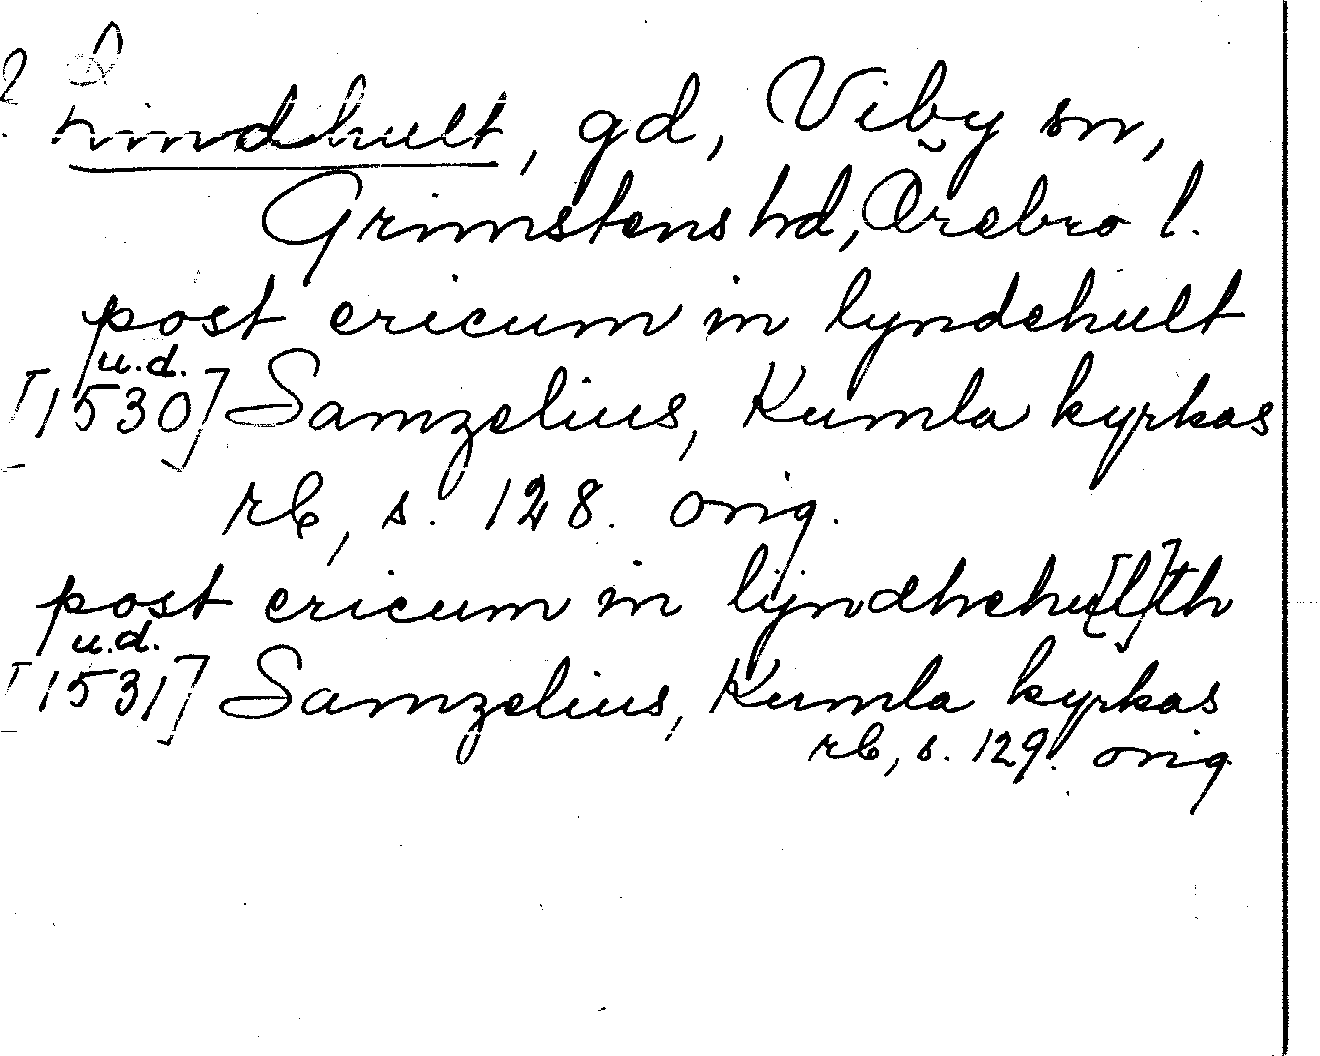 Lindhult, gd, Viby sn,
Grimstens hd, Örebro l.
post ericum in lyndehult
u.d.
[1530] Samzelius, Kumla kyrkas
rb, s. 128. orig.
post ericum in lyndhehu[l]th
u.d.
[1531] Samzelius, Kumla kyrkas
rb, s. 129. orig